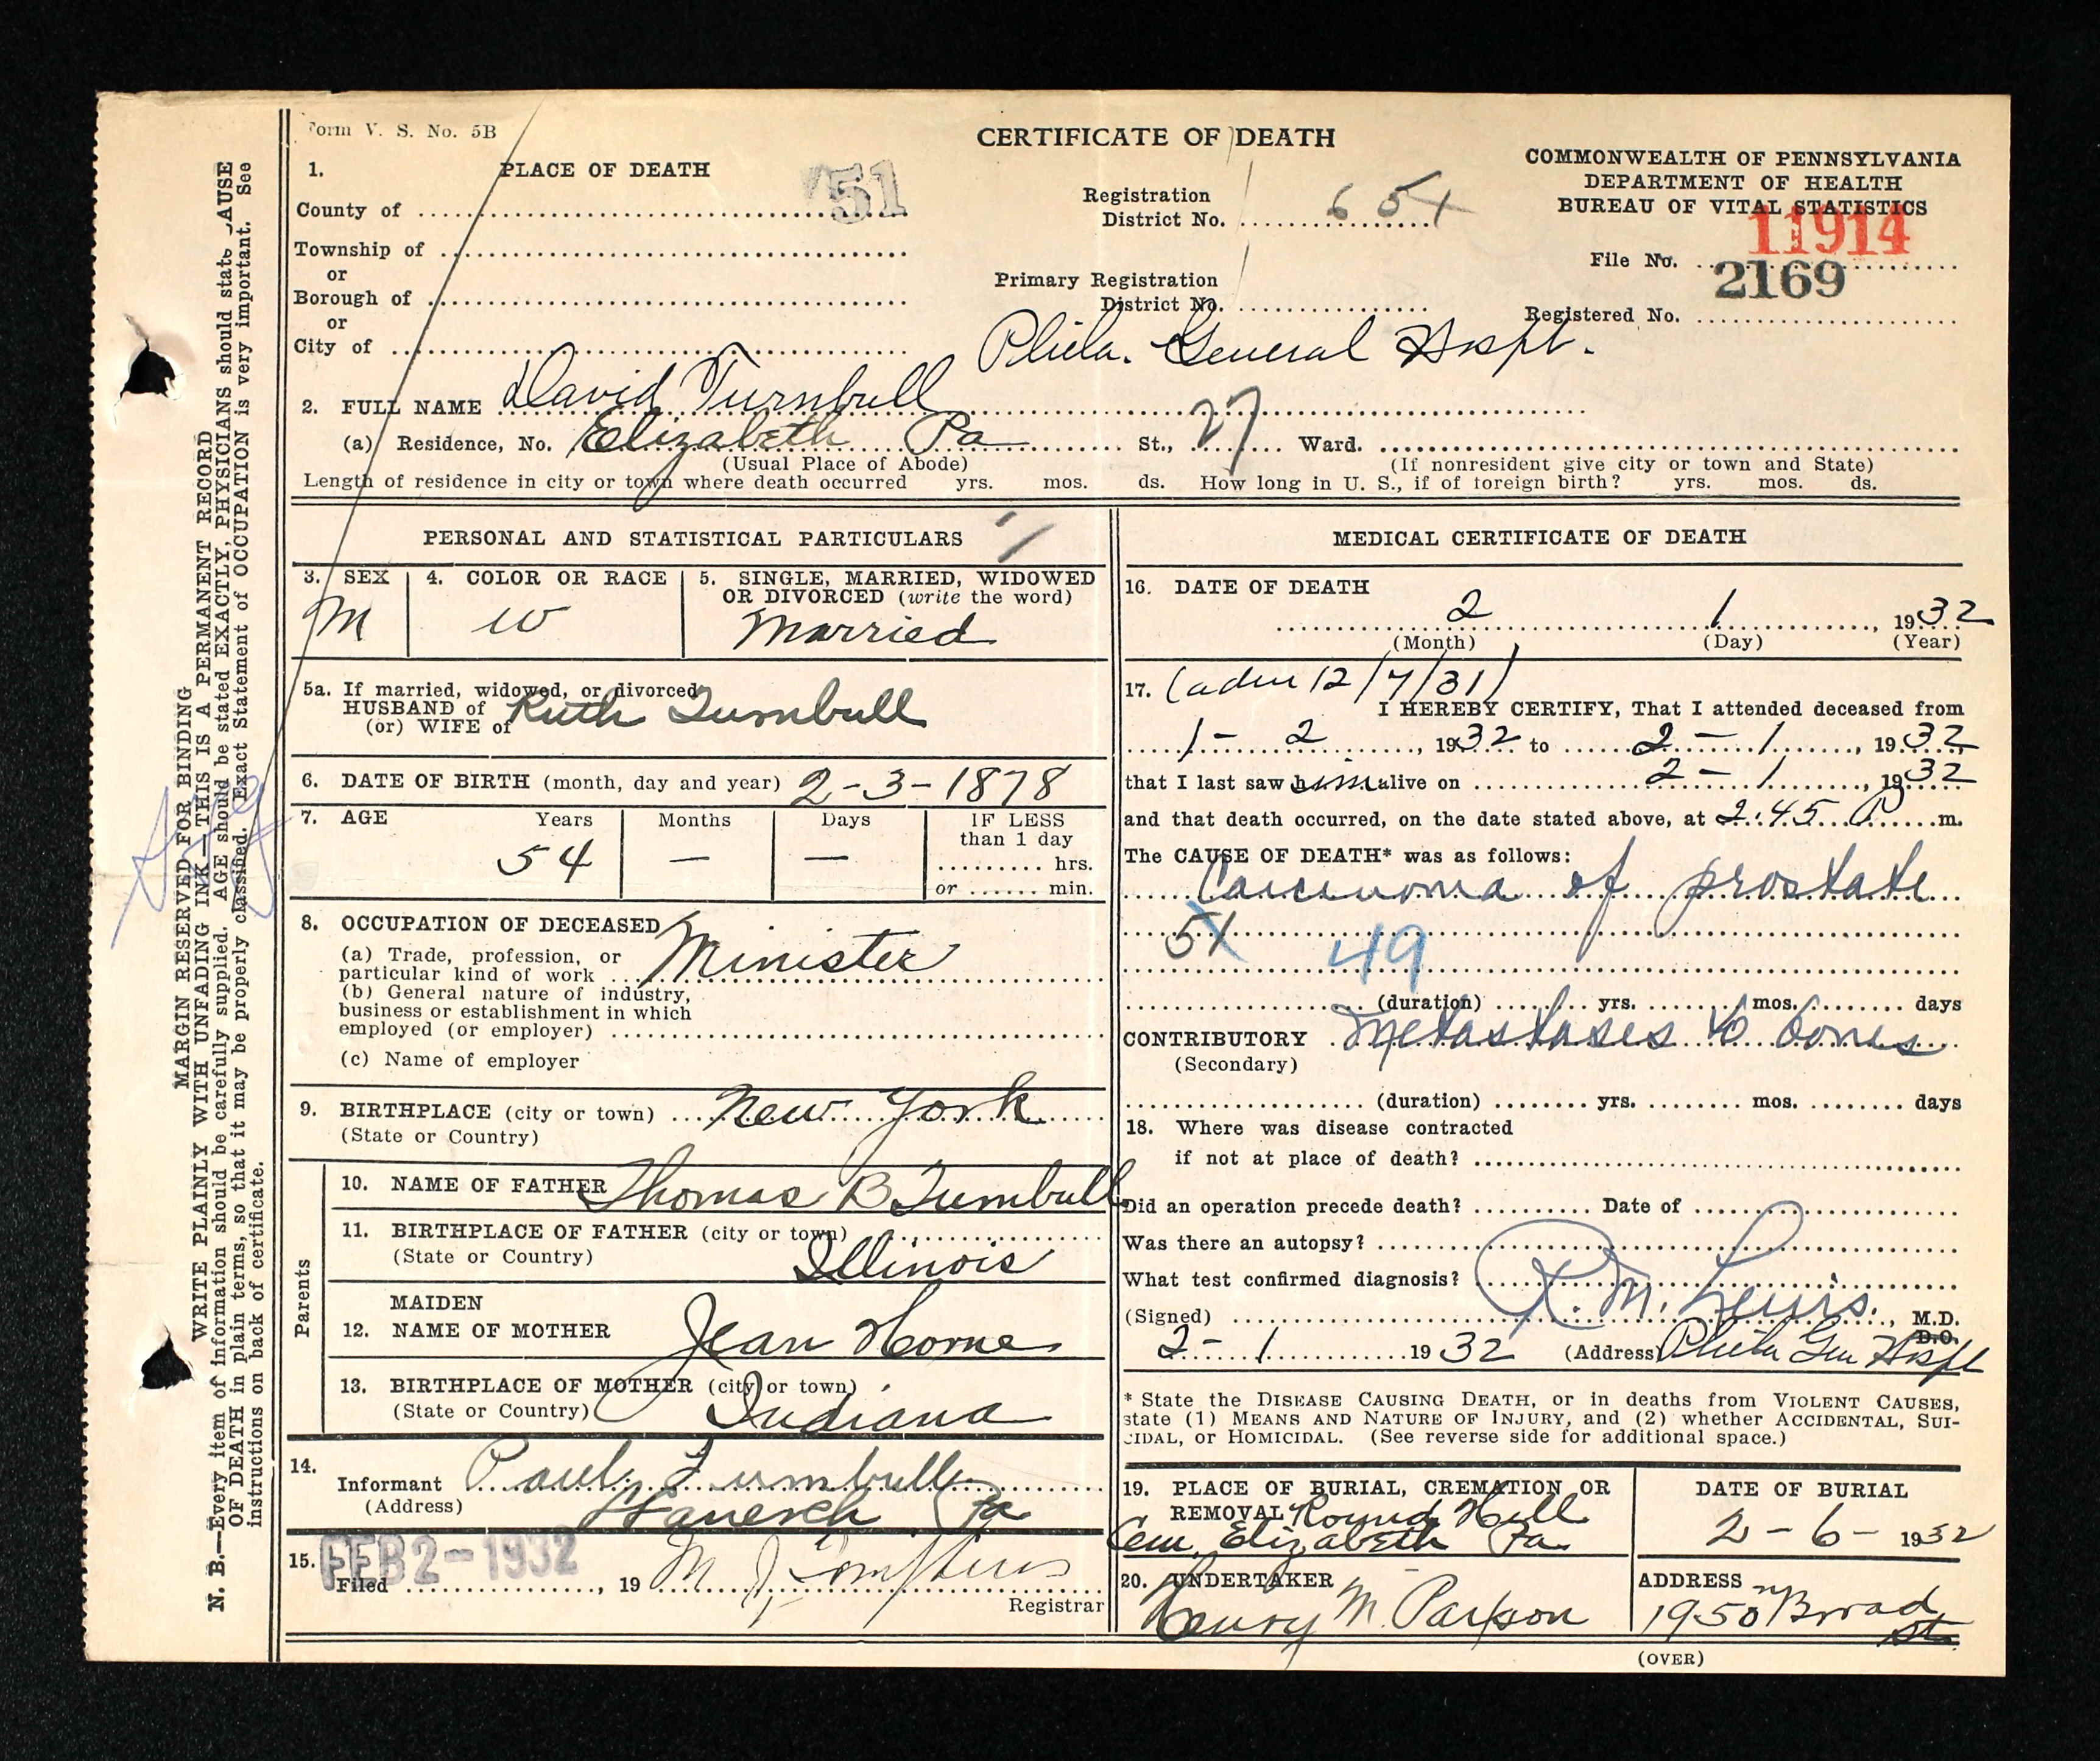 Form V. S. No. 5B
CERTIFICATE OF DEATH
COMMONWEALTH OF PENNSYLVANIA
DEPARTMENT OF HEALTH
BUREAU OF VITAL STATISTICS
1. PLACE OF DEATH
51
County of
Township of
or
Borough of
or
City of
Registration
District No. 654
Primary Registration
District No.
11914
File No.
2169
Registered No.
Phila. General Hospt.
2. FULL NAME David Turnbull
(a) Residence, No. Elizabeth Pa St., 27 Ward.
(Usual Place of Abode) (If nonresident give city or town and State)
Length of residence in city or town where death occurred yrs. mos. ds. How long in U. S., if of foreign birth? yrs. mos. ds.
PERSONAL AND STATISTICAL PARTICULARS
3. SEX
M
4. COLOR OR RACE
W
5. SINGLE, MARRIED, WIDOWED
OR DIVORCED (write the word)
Married
5a. If married, widowed, or divorced
HUSBAND of
(or) WIFE of Ruth Turnbull
6. DATE OF BIRTH (month, day and year) 2-3-1878
7. AGE Years Months Days IF LESS
than 1 day
54 — — hrs.
or min.
8. OCCUPATION OF DECEASED
(a) Trade, profession, or
particular kind of work Minister
(b) General nature of industry,
business or establishment in which
employed (or employer)
(c) Name of employer
9. BIRTHPLACE (city or town) New York
(State or Country)
Parents
10. NAME OF FATHER Thomas B Turnbull
11. BIRTHPLACE OF FATHER (city or town)
(State or Country) Illinois
MAIDEN
12. NAME OF MOTHER Jean Horne
13. BIRTHPLACE OF MOTHER (city or town)
(State or Country) Indiana
14.
Informant Paul Turnbull
(Address) Pa
15. FEB 2-1932
Filed , 19 M J
Registrar
MEDICAL CERTIFICATE OF DEATH
16. DATE OF DEATH
2 1 , 1932
(Month) (Day) (Year)
17. (adm 12/7/31)
I HEREBY CERTIFY, That I attended deceased from
1-2, 1932 to 2-1, 1932
that I last saw him alive on 2-1, 1932
and that death occurred, on the date stated above, at 2:45 P m.
The CAUSE OF DEATH* was as follows:
Carcinoma of prostate
51 49
(duration) yrs. mos. days
CONTRIBUTORY Metastases to bones
(Secondary)
(duration) yrs. mos. days
18. Where was disease contracted
if not at place of death?
Did an operation precede death? Date of
Was there an autopsy?
What test confirmed diagnosis?
(Signed) R. M. Lewis, M.D.
D.O.
2-1 1932 (Address) Phila Gen Hospt
* State the DISEASE CAUSING DEATH, or in deaths from VIOLENT CAUSES,
state (1) MEANS AND NATURE OF INJURY, and (2) whether ACCIDENTAL, SUI-
CIDAL, or HOMICIDAL. (See reverse side for additional space.)
19. PLACE OF BURIAL, CREMATION OR
REMOVAL Round Hill
Cem Elizabeth Pa
DATE OF BURIAL
2-6-1932
20. UNDERTAKER
Henry M. Parson
ADDRESS
1950 N Broad
St.
(OVER)
MARGIN RESERVED FOR BINDING
WRITE PLAINLY WITH UNFADING INK—THIS IS A PERMANENT RECORD
N. B.—Every item of information should be carefully supplied. AGE should be stated EXACTLY, PHYSICIANS should state CAUSE
OF DEATH in plain terms, so that it may be properly classified. Exact Statement of OCCUPATION is very important. See
instructions on back of certificate.